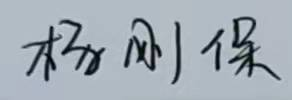 杨刚保